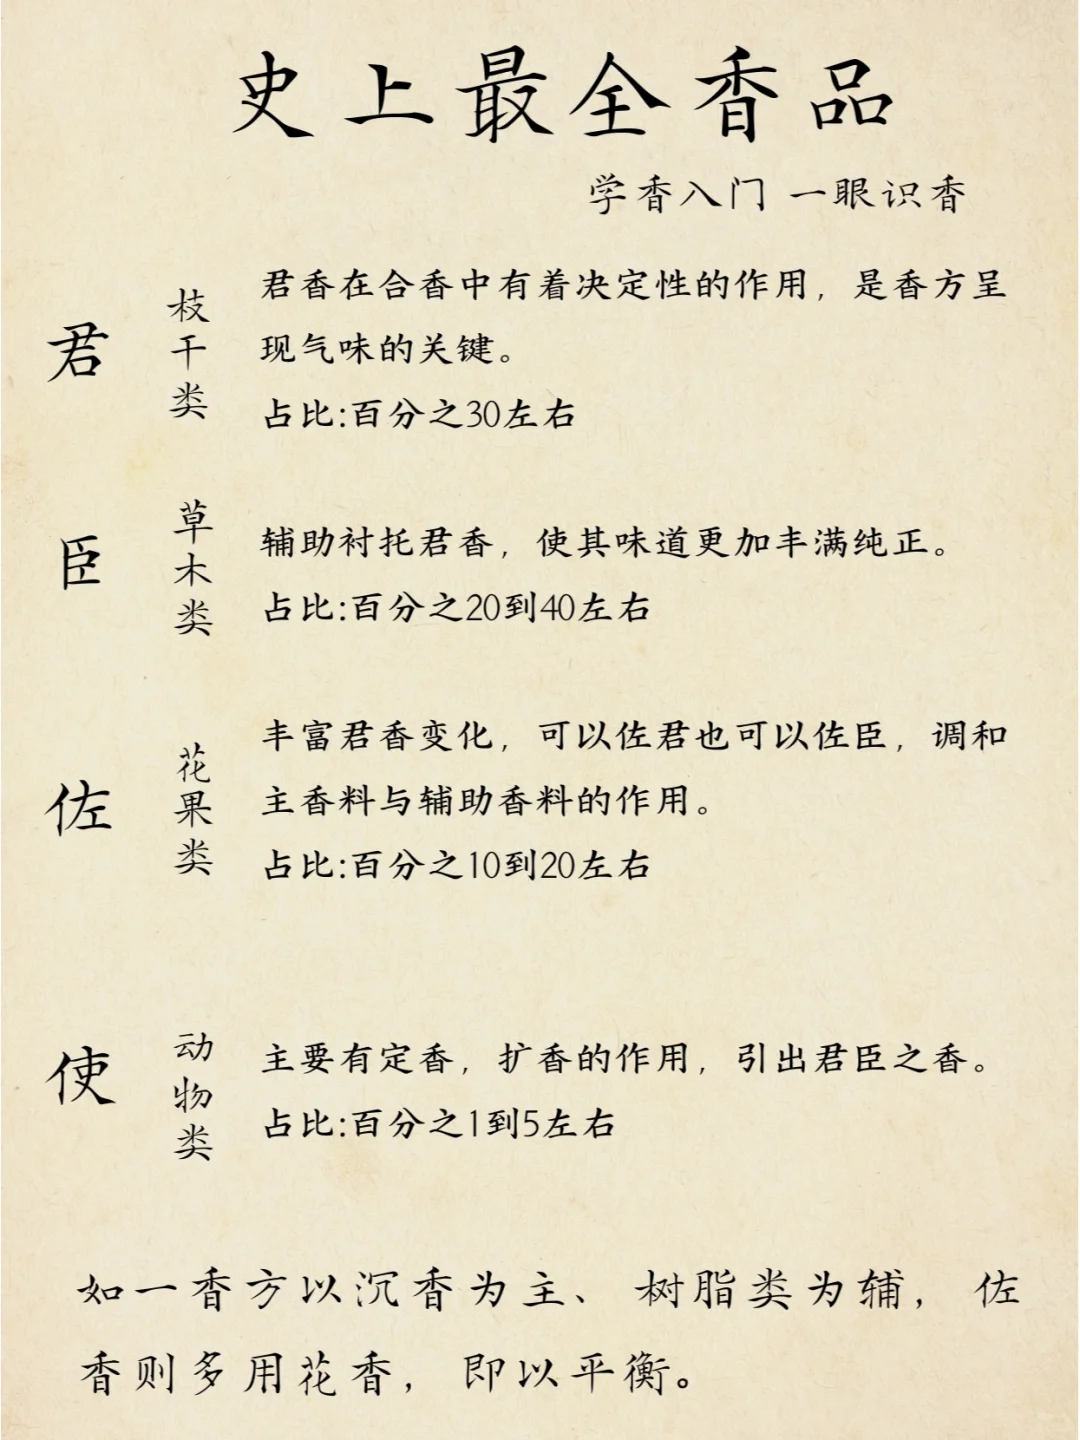 史上最全香品
学香入门 一眼识香
君
枝干类
君香在合香中有着决定性的作用，是香方呈
现气味的关键。
占比:百分之30左右
臣
草木类
辅助衬托君香，使其味道更加丰满纯正。
占比:百分之20到40左右
佐
花果类
丰富君香变化，可以佐君也可以佐臣，调和
主香料与辅助香料的作用。
占比:百分之10到20左右
使
动物类
主要有定香，扩香的作用，引出君臣之香。
占比:百分之1到5左右
如一香方以沉香为主、树脂类为辅，佐
香则多用花香，即以平衡。